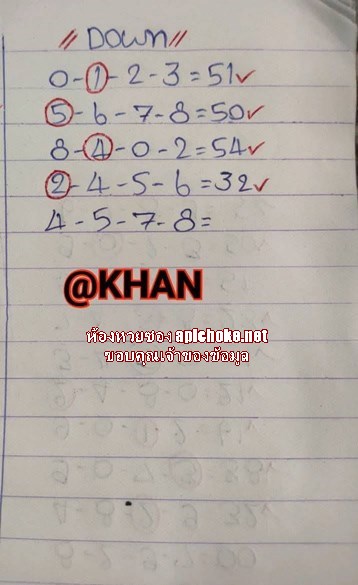 // DOWN //
0-1-2-3=51✓
5-6-7-8=50✓
8-4-0-2=54✓
2-4-5-6=32✓
4-5-7-8=
@KHAN
ห้องหวยซอง apichoke.net
ขอบคุณเจ้าของข้อมูล